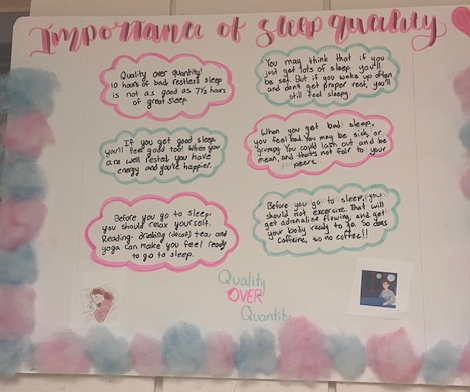 Importance of sleep quality
Quality over quantity!
10 hours of bad restless sleep
is not as good as 7½ hours
of great sleep.
You may think that if you
just get lots of sleep you'll
be set. But if you wake up often
and don't get proper rest, you'll
still feel sleepy.
If you get good sleep
you'll feel good too! When you
are well rested you have
energy and you're happier.
When you get bad sleep,
you feel bad. You may be sick, or
grumpy. You could lash out and be
mean, and thats not fair to your
peers.
Before you go to sleep
you should relax yourself.
Reading, drinking (decaf) tea, and
yoga can make you feel ready
to go to sleep.
Before you go to sleep, you
should not excersize. That will
get adrenaline flowing, and get
your body ready to go. So does
caffeine, so no coffee!!
Quality
OVER
Quantity